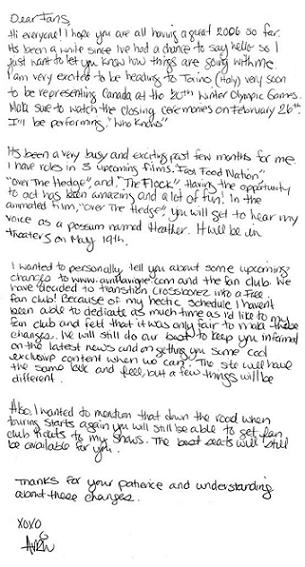 Dear Fans,
Hi everyone! I hope you are all having a great 2006 so far.
Its been a while since Ive had a chance to say hello so I
just want to let you know how things are going with me.
I am very excited to be heading to Torino (Italy) very soon
to be representing Canada at the 20th Winter Olympic Games.
Make sure to watch the closing ceremonies on February 26th.
I'll be performing "Who Knows"
Its been a very busy and exciting past few months for me.
I have roles in 3 upcoming films. "Fast Food Nation",
"Over The Hedge", and "The Flock". Having the opportunity
to act has been amazing and a lot of fun! In the
animated film, "Over The Hedge", you will get to hear my
voice as a possum named Heather. It will be in
theaters on May 19th.
I wanted to personally tell you about some upcoming
changes to www.avrillavigne.com and the fan club. We
have decided to transition Crossboxez into a Free
fan club! Because of my hectic schedule I haven't
been able to dedicate as much time as I'd like to my
fan club and felt that it was only fair to make these
changes. We will still do our best to keep you informed
on the latest news and on getting you some cool
exclusive content when we can. The site will have
the same look and feel, but a few things will be
different.
Also I wanted to mention that down the road when
touring starts again you will still be able to get fan
club tickets to my shows. The best seats will still
be available for you.
Thanks for your patience and understanding
about these changes.
XOXO
Avril